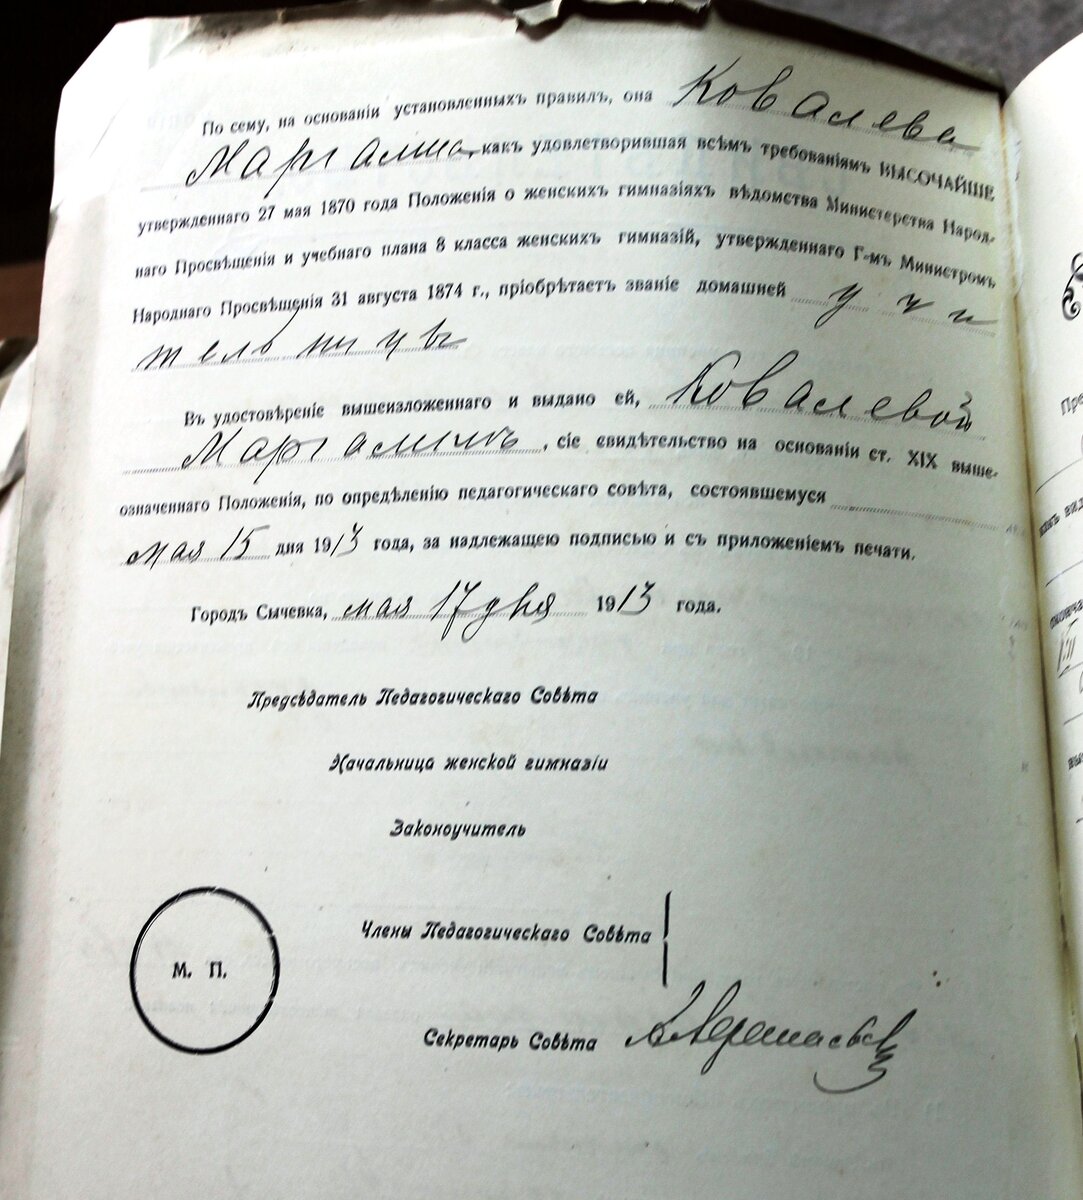 По сему, на основаніи установленныхъ правилъ, она Ковалева
Маргалина, какъ удовлетворившая всѣмъ требованіямъ ВЫСОЧАЙШЕ
утвержденнаго 27 мая 1870 года Положенія о женскихъ гимназіяхъ вѣдомства Министерства Народ-
наго Просвѣщенія и учебнаго плана 8 класса женскихъ гимназій, утвержденнаго Г-мъ Министромъ
Народнаго Просвѣщенія 31 августа 1874 г., пріобрѣтаетъ званіе домашней учи
тельницы
Въ удостовѣреніе вышеизложеннаго и выдано ей, Ковалевой
сіе свидѣтельство на основаніи ст. XIX выше-
означеннаго Положенія, по опредѣленію педагогическаго совѣта, состоявшемуся
мая 15 дня 1913 года, за надлежащею подписью и съ приложеніемъ печати.
Городъ Сычевка, мая 17 дня 1913 года.
Предсѣдатель Педагогическаго Совѣта
Начальница женской гимназіи
Законоучитель
Члены Педагогическаго Совѣта
М. П.
Секретарь Совѣта